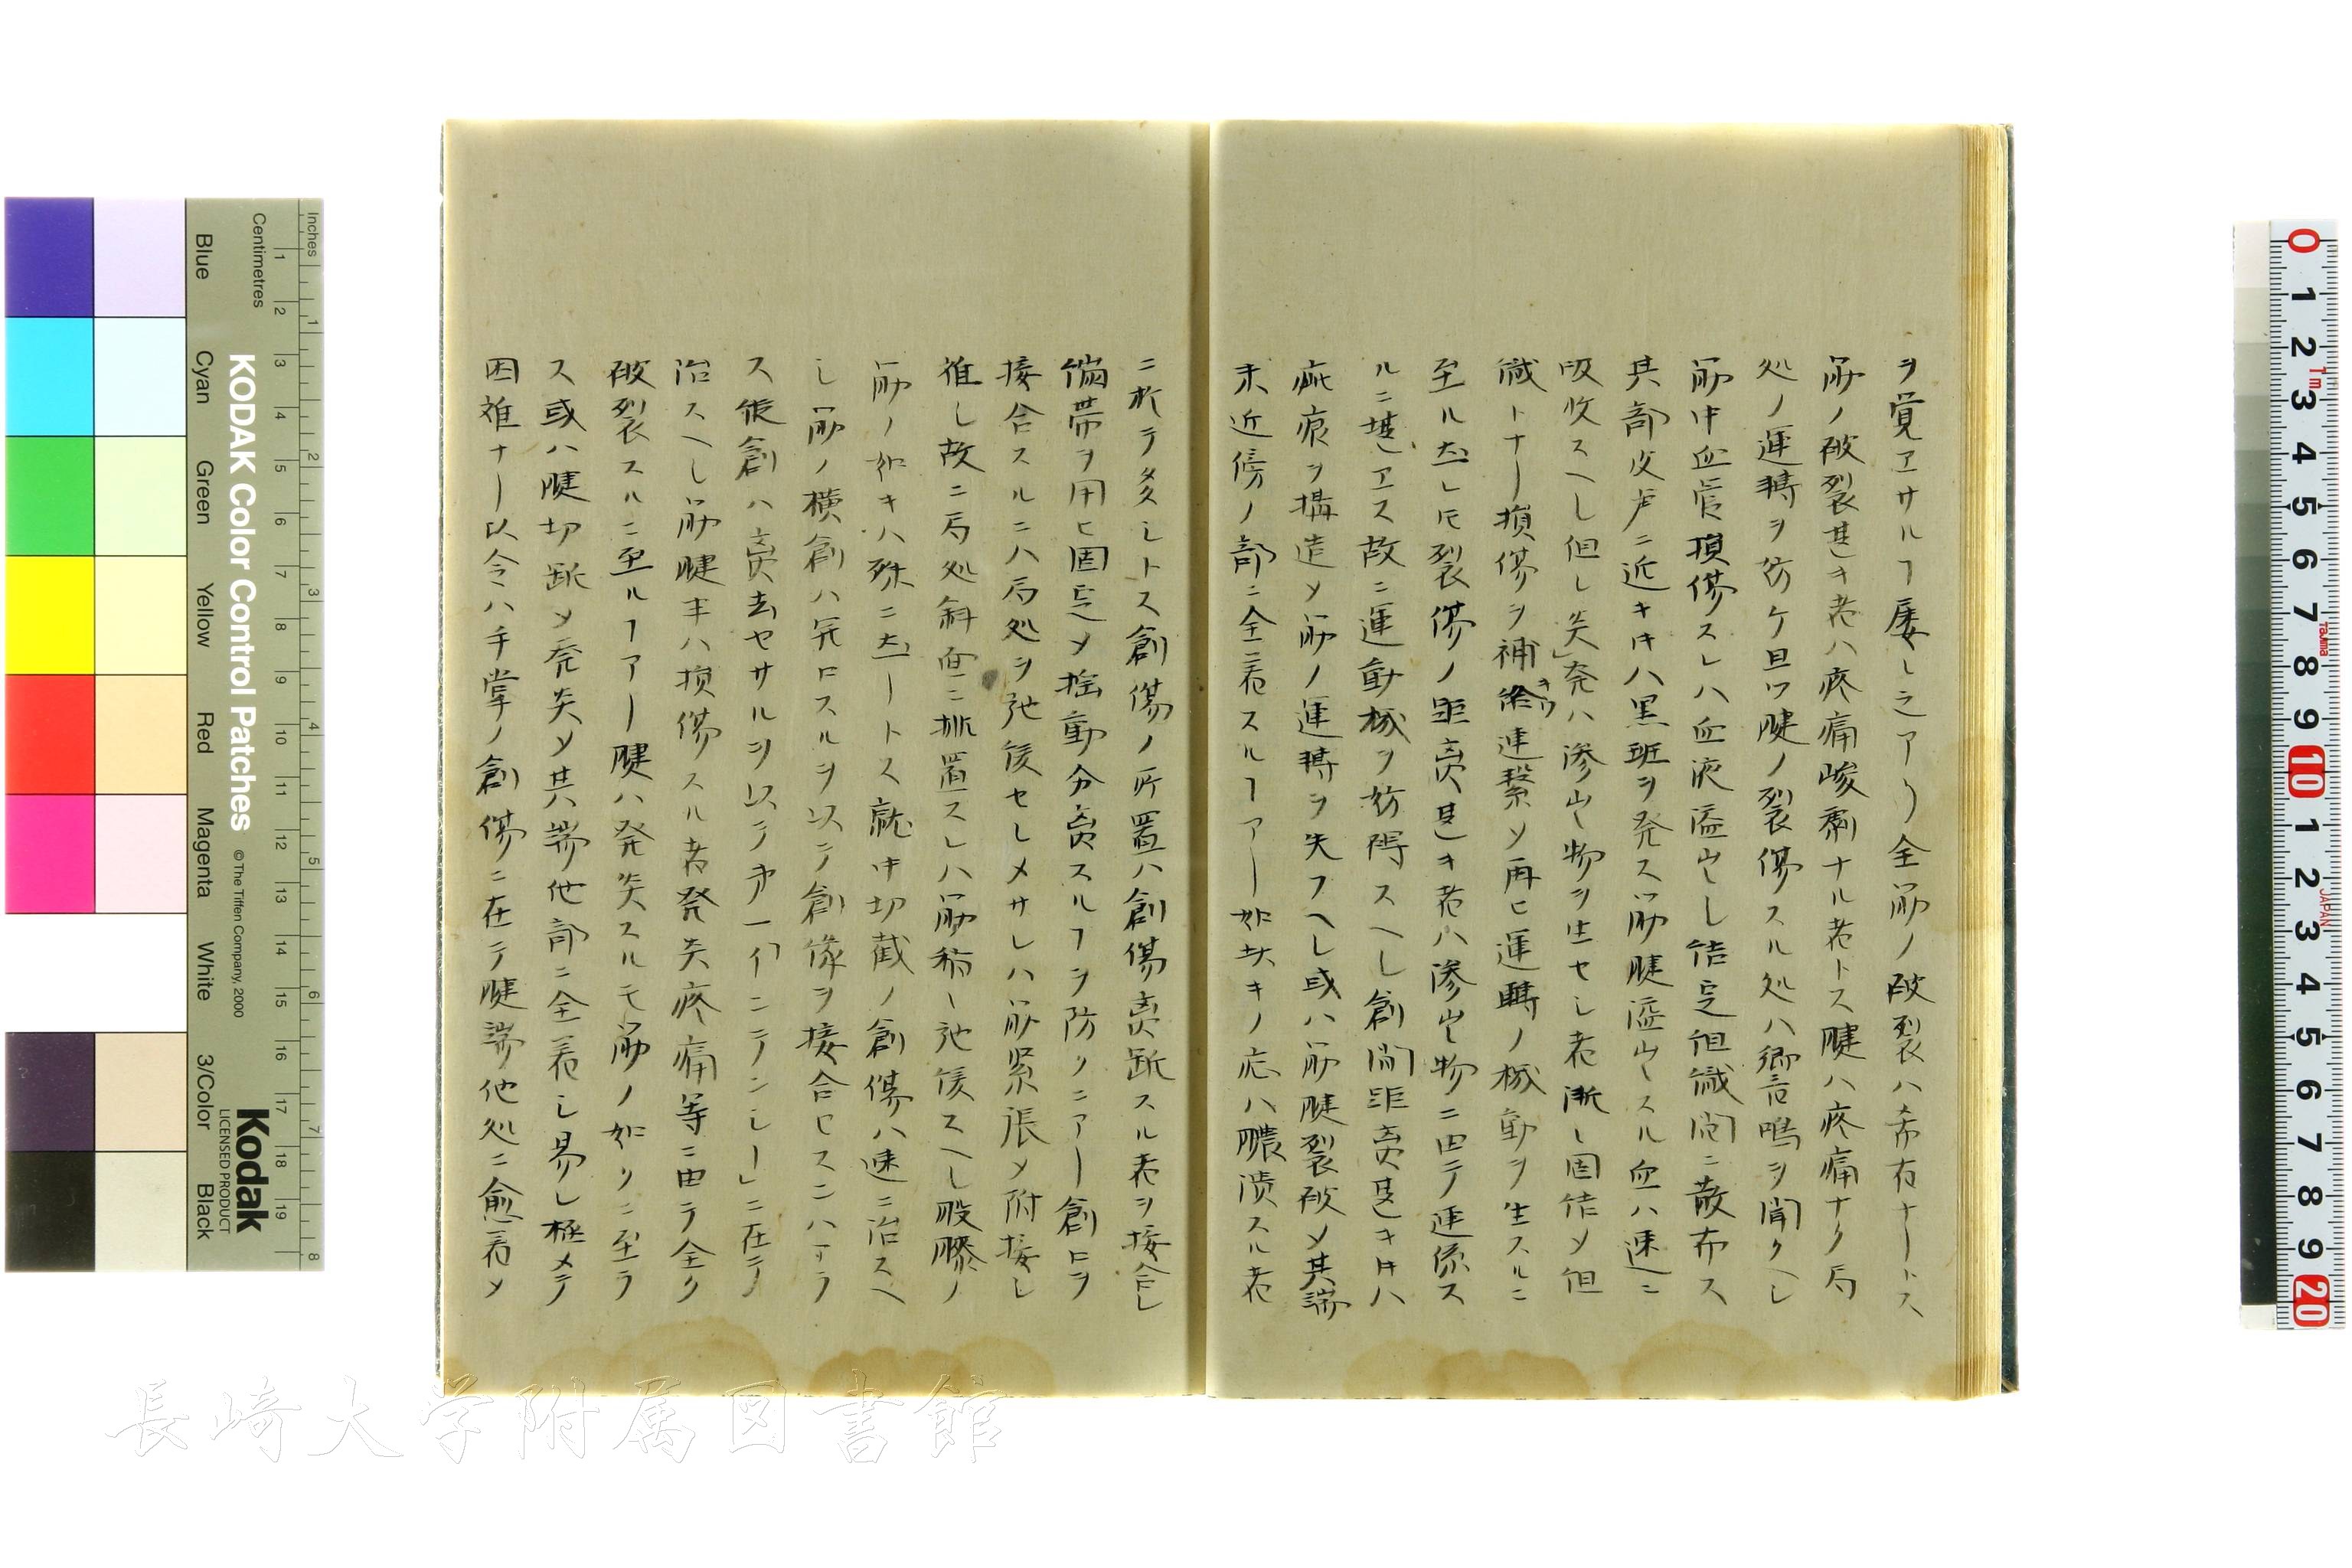 ヲ覚エサルヿ屡之アリ全筋ノ破裂ハ希有ナートス
筋ノ破裂甚キ者ハ疼痛峻劇ナル者トス腱ハ疼痛ナク局
処ノ運轉ヲ妨ケ且ツ腱ノ裂傷スル処ハ郷音鳴ヲ聞クヘシ
筋中血管損傷スレハ血液溢出シ結定組織間ニ散布ス
其部皮膚ニ近キ𪜈ハ黒斑ヲ発ス筋腱溢出スル血ハ速ニ
吸收スヘシ但シ炎発ハ滲出物ヲ生セシ者漸ク固結ソ組
織トナー損傷ヲ補給連繋ソ再ヒ運轉ノ機動ヲ生スルニ
至ル然レ𪜈裂傷ノ距离甚キ者ハ滲出物ニ由テ連係ス
ルニ堪エス故ニ運動機ヲ妨碍スヘシ創間距离甚キ𪜈ハ
疵痕ヲ構造ソ筋ノ運轉ヲ失フヘシ或ハ筋腱裂破ソ其端
末近傍ノ部ニ全着スルヿアー如夫キノ症ハ膿潰スル者
ニ於テ多シトス創傷ノ所置ハ創傷离断スル者ヲ接合シ
繃帯ヲ用ヒ固定ソ揺動分离スルヿヲ防クニアー創口ヲ
接合スルニハ局処ヲ弛緩セシメサレハ筋緊張ソ附接シ
難シ故ニ局処斜面ニ排置スレハ筋稍ー弛緩スヘシ股膝ノ
筋ノ如キハ殊ニ然ートス就中切截ノ創傷ハ速ニ治スヘ
シ筋ノ横創ハ哆口スルヲ以テ創縁ヲ接合セスンハアラ
ス縦創ハ离去セサルヲ以テ第一「インテンシー」ニ在テ
治スヘシ筋腱半ハ損傷スル者発炎疼痛等ニ由テ全ク
破裂スルニ至ルヿアー腱ハ発炎スルモ筋ノ如クニ至ラ
ス或ハ腱切断ソ発炎ソ其端他部ニ全着シ易シ極メテ
困難ナー以令ハ手掌ノ創傷ニ在テ腱端他処ニ愈着ソ
KODAK Color Control Patches
© The Tiffen Company, 2000
Kodak
LICENSED PRODUCT
Inches
Centimetres
Blue
Cyan
Green
Yellow
Red
Magenta
White
3/Color
Black
長崎大学附属図書館